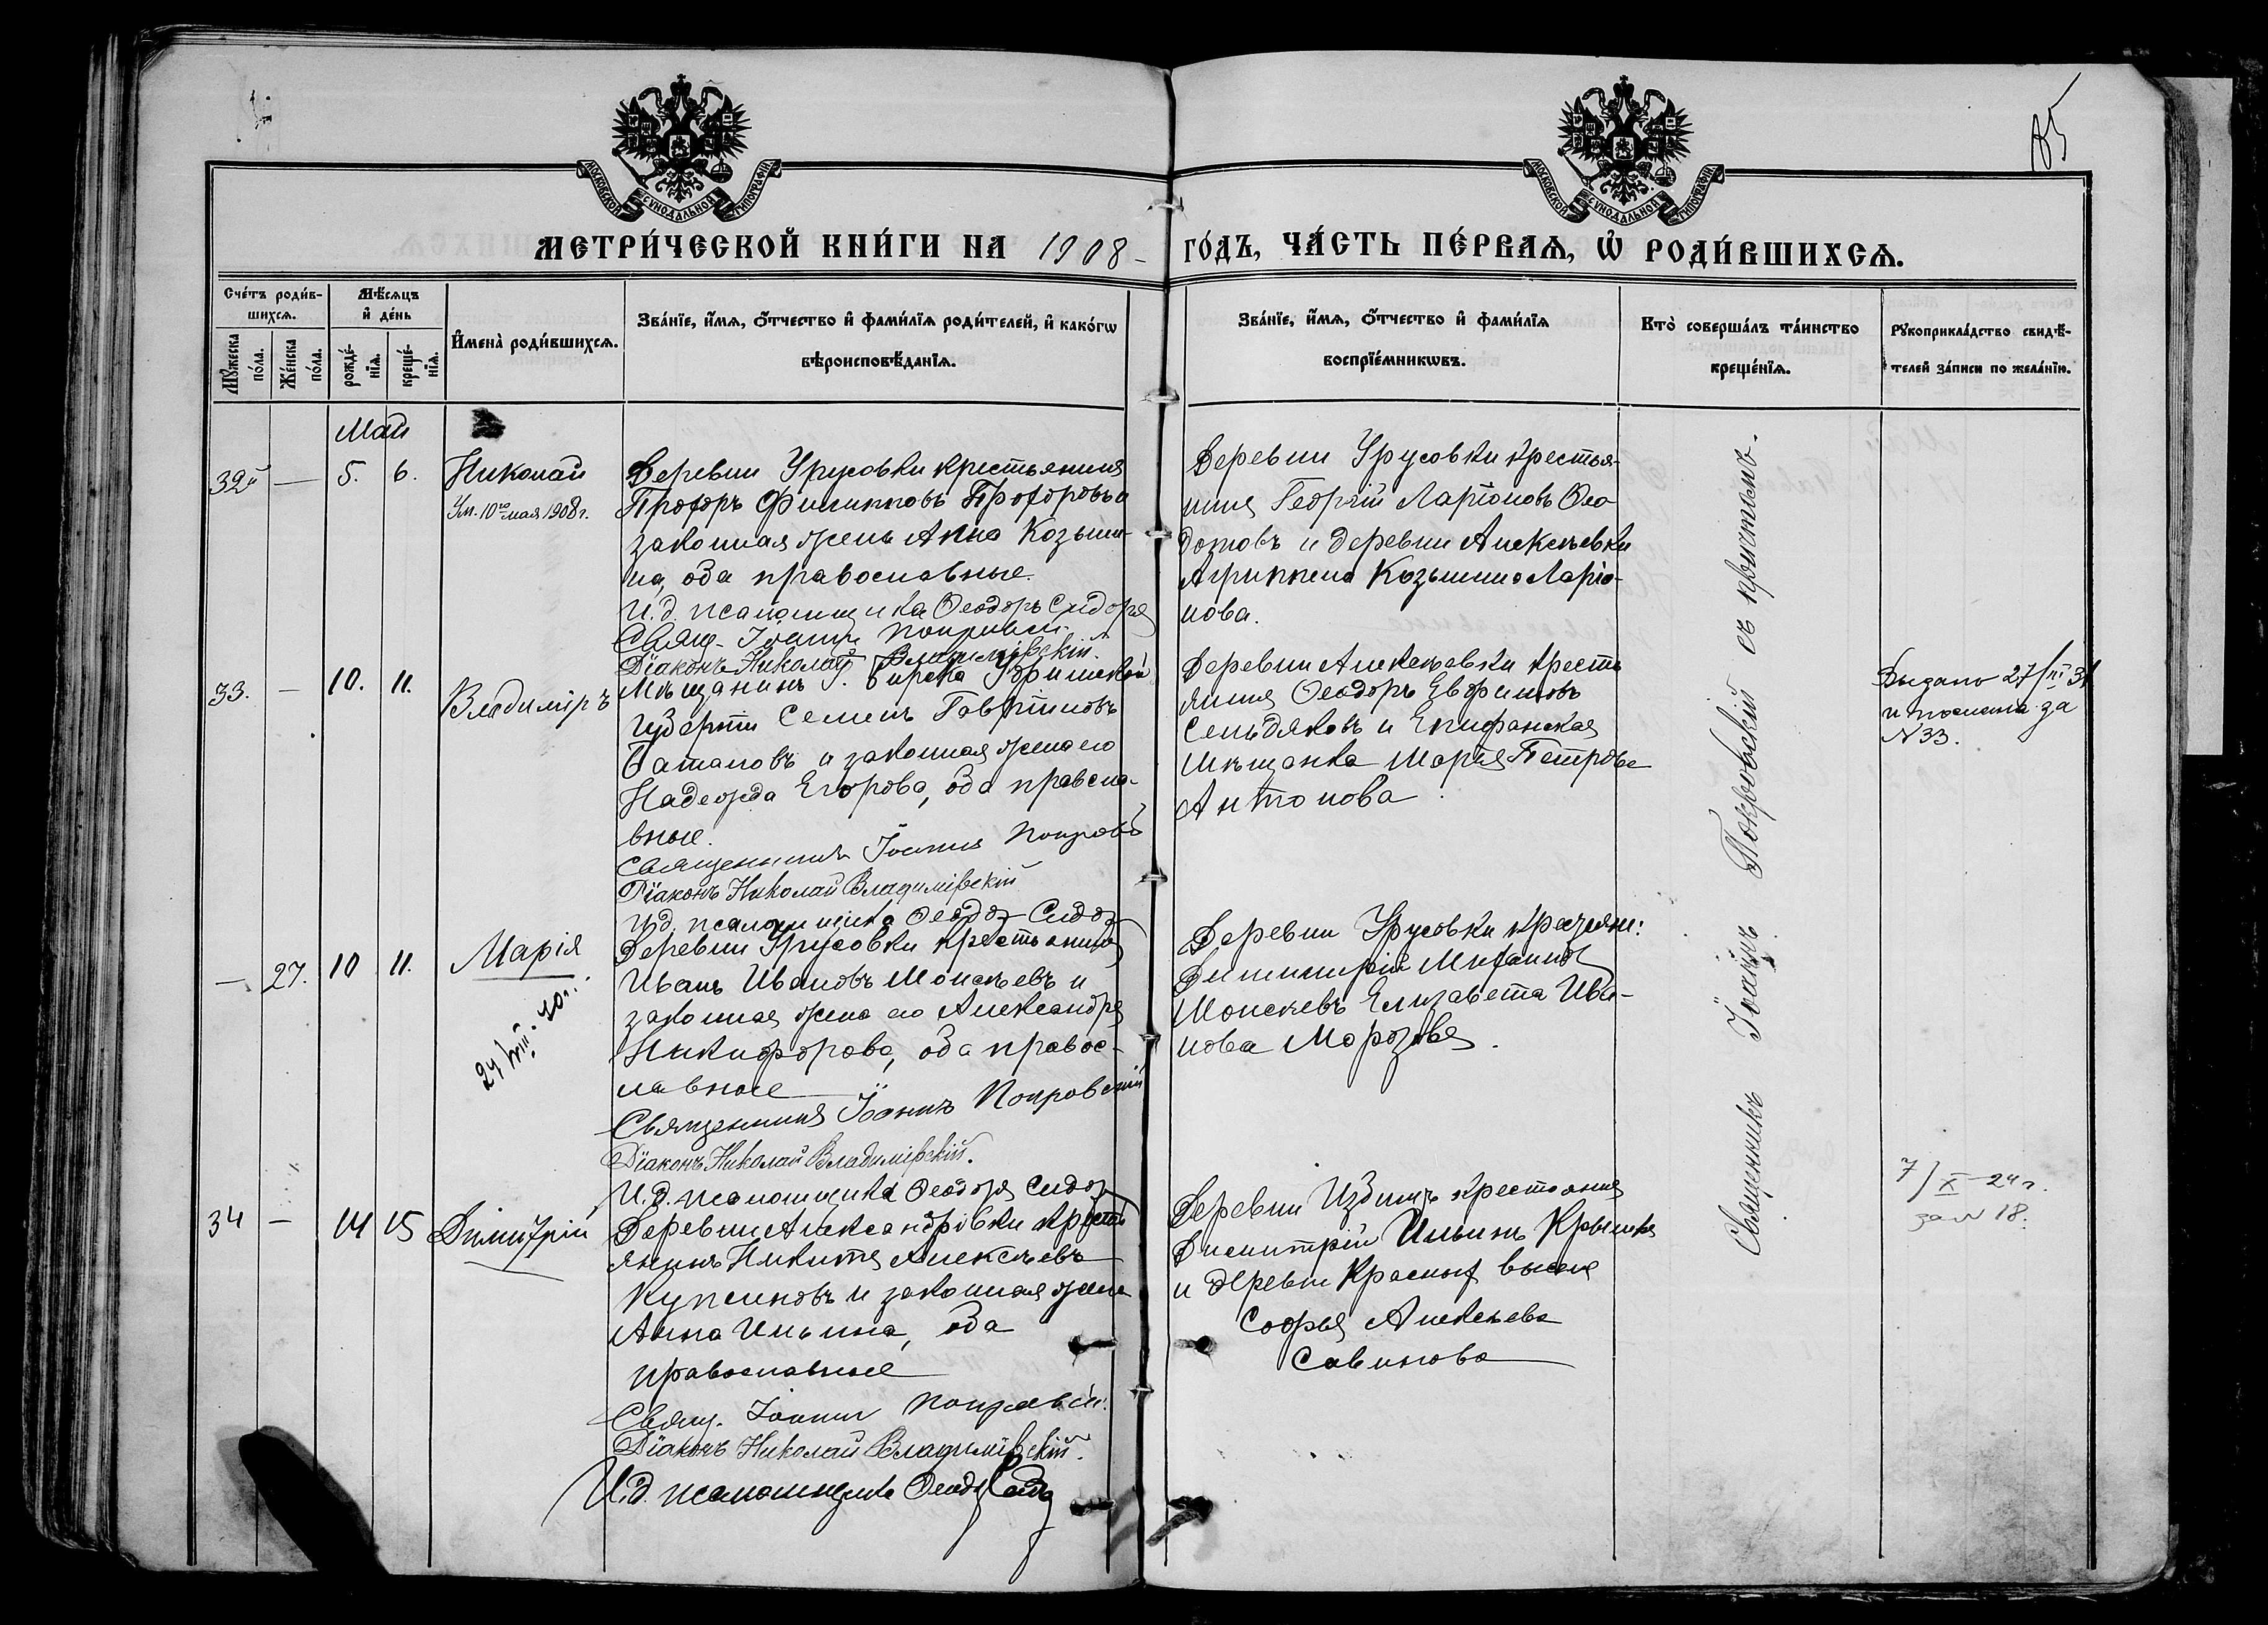 85
МОСКОВСКОЙ СУНОДАЛЬНОЙ ТИПОГРАФІИ
МОСКОВСКОЙ СУНОДАЛЬНОЙ ТИПОГРАФІИ
МЕТРИ́ЧЕСКОЙ КНИ́ГИ НА 1908 ГО́ДЪ, ЧА́СТЬ ПЕ́РВАѦ, Ѡ҆ РОДИ́ВШИХСѦ.
Сче́тъ роди́в-
шихсѧ.
Мꙋ́жеска по́ла.
Же́нска по́ла.
Мѣ́сѧцъ
и҆ де́нь
рожде́-
нїѧ.
креще́-
нїѧ.
И҆мена̀ роди́вшихсѧ.
Зва́нїе, и҆́мѧ, ѻ҆́тчество и҆ фами́лїѧ роди́телей, и҆ како́гѡ
вѣроисповѣ́данїѧ.
Зва́нїе, и҆́мѧ, ѻ҆́тчество и҆ фами́лїѧ
воспрїе́мникѡвъ.
Кто̀ соверша́лъ та́инство
креще́нїѧ.
Рꙋкоприкла́дство свидѣ́-
телей за́писи по жела́нїю.
Май
32й — 5. 6. Николай
Ум. 10го мая 1908 г.
Деревни Урусовки крестьянинъ
Прохоръ Филипповъ Прохоровъ и
законная жена Анна Козьми-
на, оба православные.
И.д. псаломщика Ѳеодоръ Сидоръ
Свящ. Іоаннъ Покровскій
Діаконъ Николай Владимірскій.
Деревни Урусовки крестья-
нинъ Георгій Ларіоновъ Ѳео
дотовъ и деревни Алексѣевки
Агриппина Козьмина Ларіо-
нова.
33. — 10. 11. Владиміръ
Мѣщанинъ г. Бирска Уфимской
губерніи Семенъ
Баталовъ и законная жена его
Надежда Егорова, оба правосла-
вные.
Священникъ Іоаннъ Покровс
Діаконъ Николай Владимірскій
И.д. псаломщика Ѳеодоръ Сидор
Деревни Алексѣевки кресть
янинъ Ѳеодоръ Евфимовъ
Сендяковъ и Епифанская
мѣщанка Марія Петрова
Антонова
Выдано 27/
за
N 33.
— 27. 10 11. Марія
24/VIII. 40 г.
Деревни Урусовки крестьянинъ
Иванъ Ивановъ Моисѣевъ и
законная жена его Александра
Никифорова, оба правос-
лавные
Священникъ Іоаннъ Покровскій
Діаконъ Николай Владимірскій.
И.д. псаломщика Ѳеодоръ Сидор
Деревни Урусовки крестьяни:
Димитрій
Моисѣевъ Елизавета Ива-
нова Морозова.
34 — 14 15 Димитрій
Деревни Александровки кресть
янинъ Никита Алексѣевъ
Купсиновъ и законная жена
Анна Ильина, оба
православные
Свящ. Іоаннъ Покровскій.
Діаконъ Николай Владимірскій.
И.д. псаломщика Ѳеодоръ Сидоръ
Деревни крестьянинъ
Димитрій Ильинъ
и деревни Красныхъ
Софья Алексѣева
Савинова
7/X 24 г.
за N 18.
Священникъ Іоаннъ Покровскій съ причтомъ.